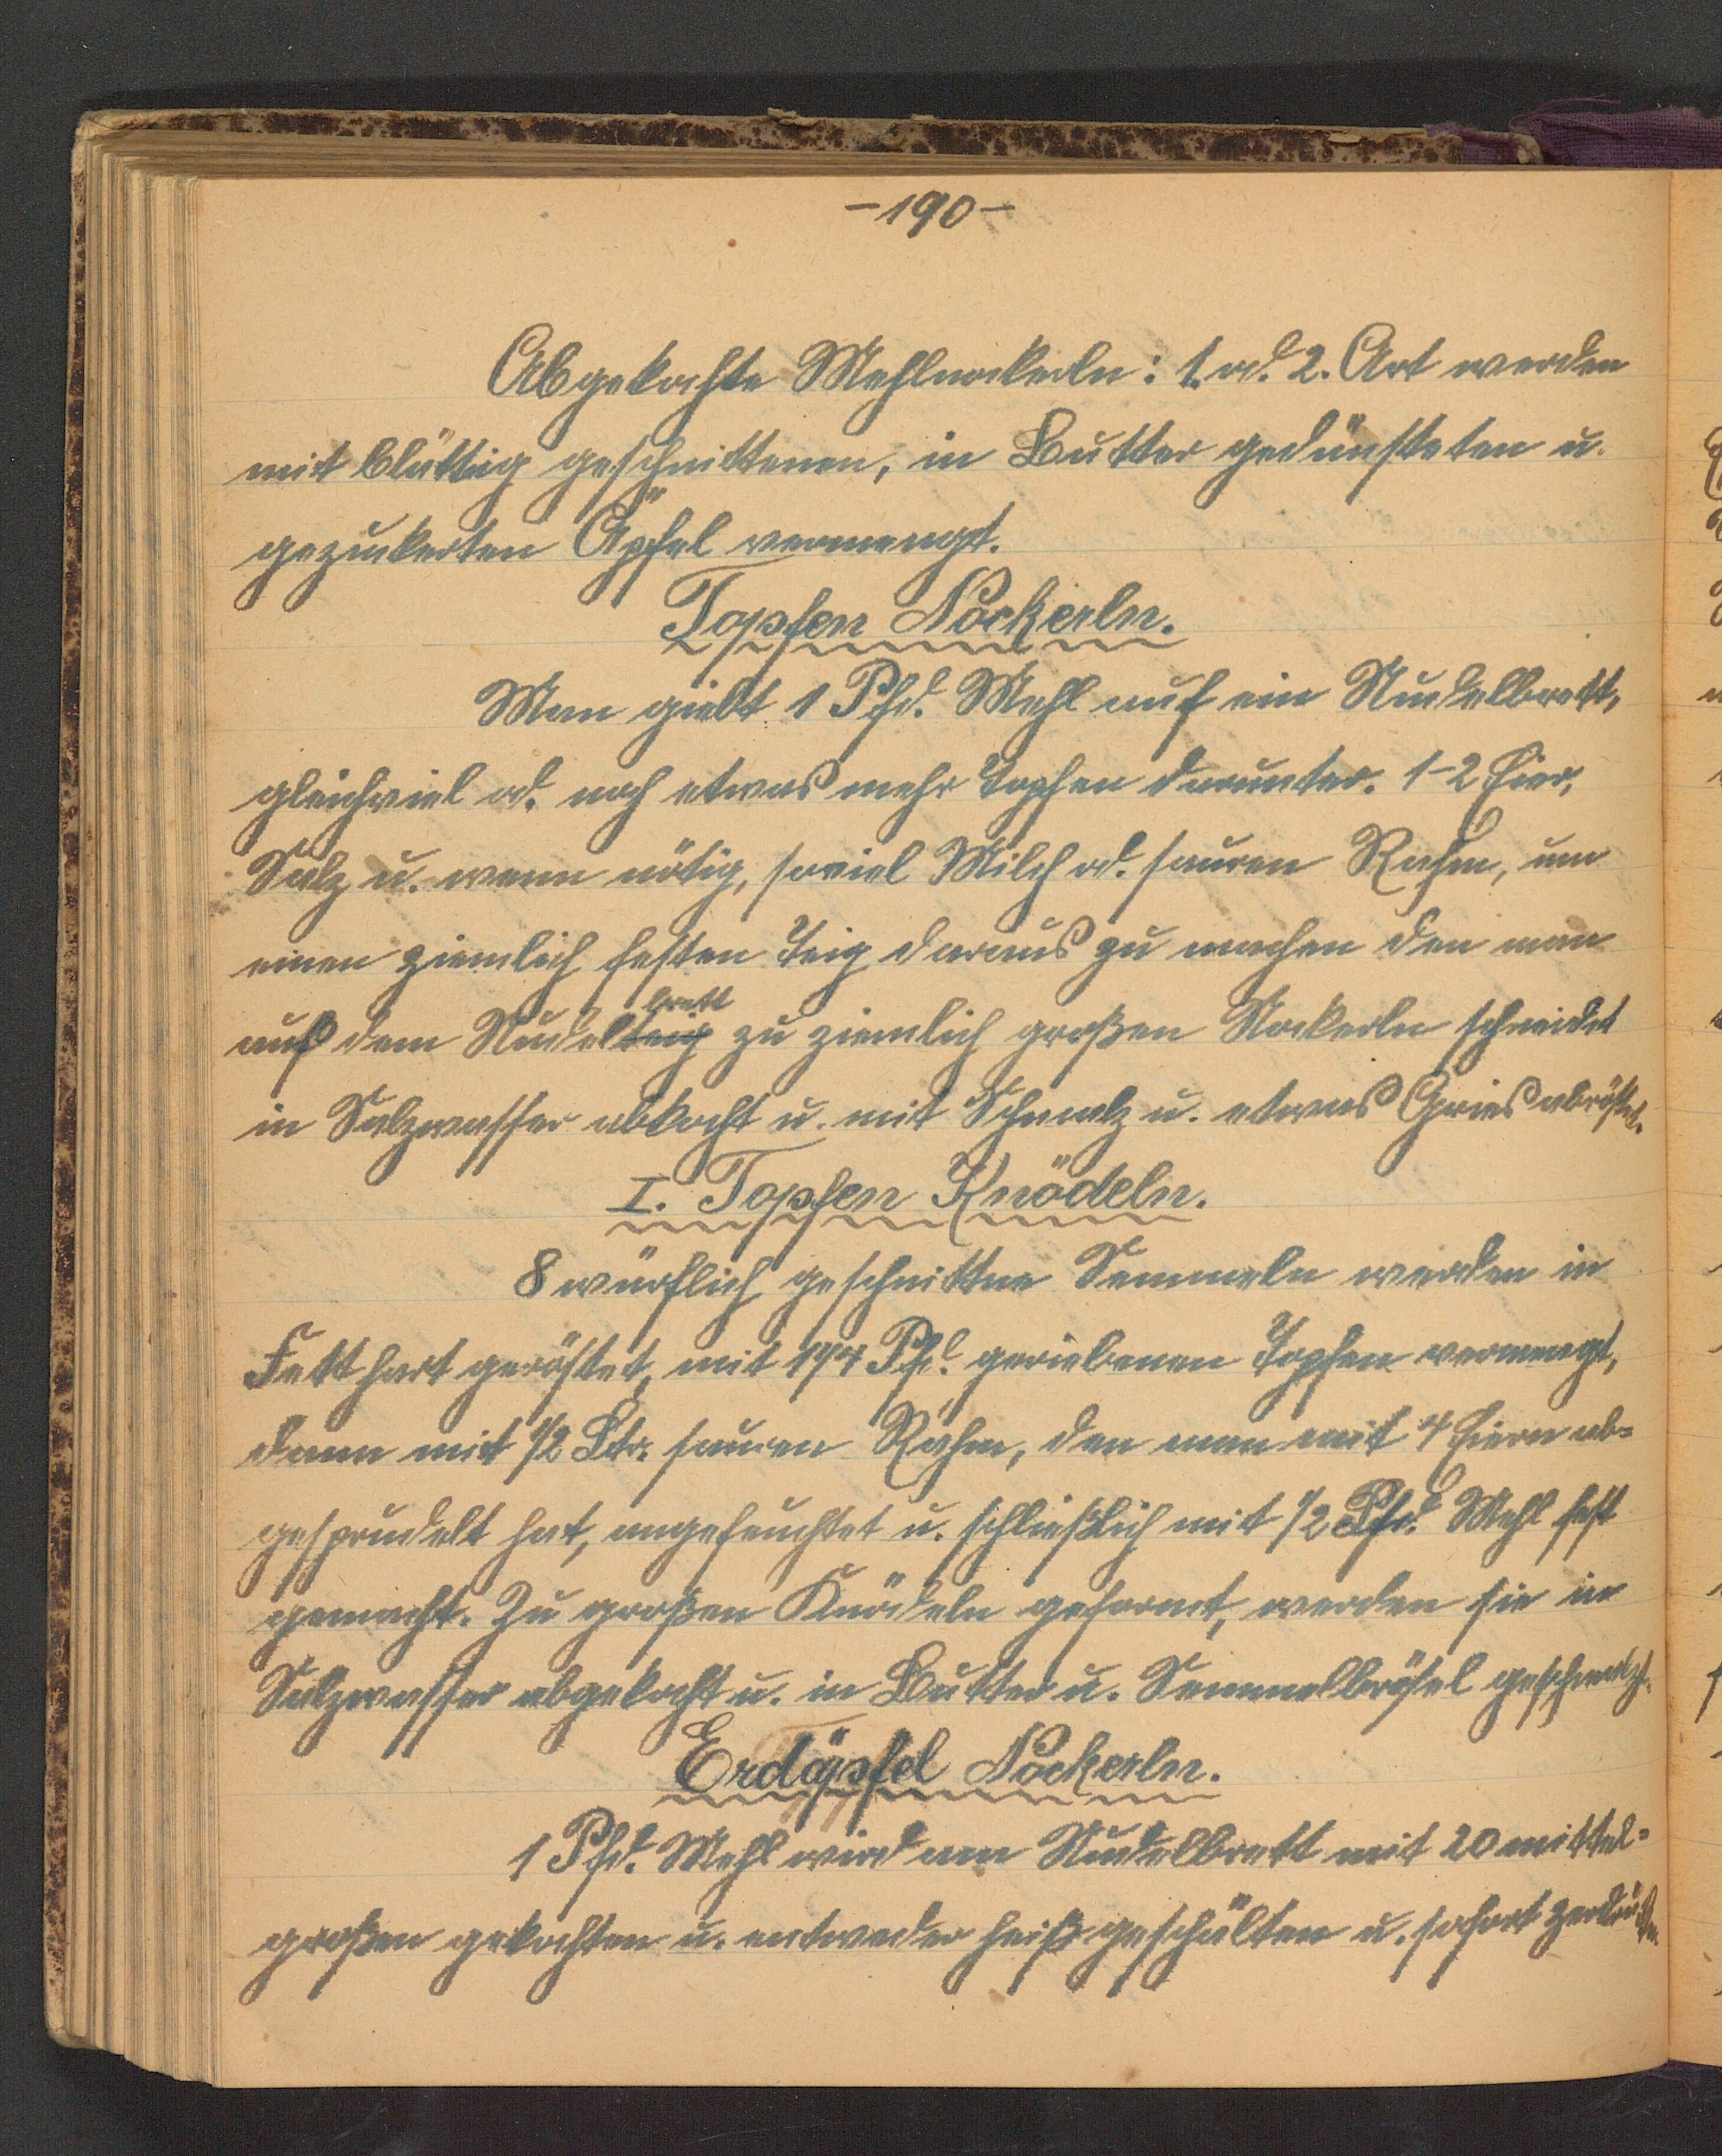 -190-
Abgekochte Mehlnockerln: 1. od. 2. Art werden
mit blättrig geschnittenen, in Butter gedünsteten u.
gezuckerten Äpfel vermengt.
Topfen Nockerln.
Man giebt 1 Pfd. Mehl auf ein Nudelbrett,
gleichviel od. noch etwas mehr Topfen darunter. 1-2 Eier,
Salz u. wenn nötig, soviel Milch od. sauren Rahm, um
einen ziemlich festen Teig daraus zu machen den man
brett
auf dem Nudelteig zu ziemlich großen Nockerln schneidet
in Salzwasser abkocht u. mit Schmalz u. etwas Gries abröstet.
I. Topfen Knödeln.
8 würflich geschnittne Semmeln werden in
Fett hart geröstet, mit 1 1/4 Pfd. geriebenen Topfen vermengt,
dann mit 1/2 Ltr. sauren Rahm, den man mit 4 Eiern ab-
gesprudelt hat, angefeuchtet u. schließlich mit 1/2 Pfd. Mehl fest
gemacht. Zu großen Knödeln geformt, werden sie in
Salzwasser abgekocht u. in Butter u. Semmelbrösel geschmalzt.
Erdäpfel Nockerln.
1 Pfd. Mehl wird am Nudelbrett mit 20 mittel-
großen gekochten u. entweder heiß geschälten u. sofort zerdrückten